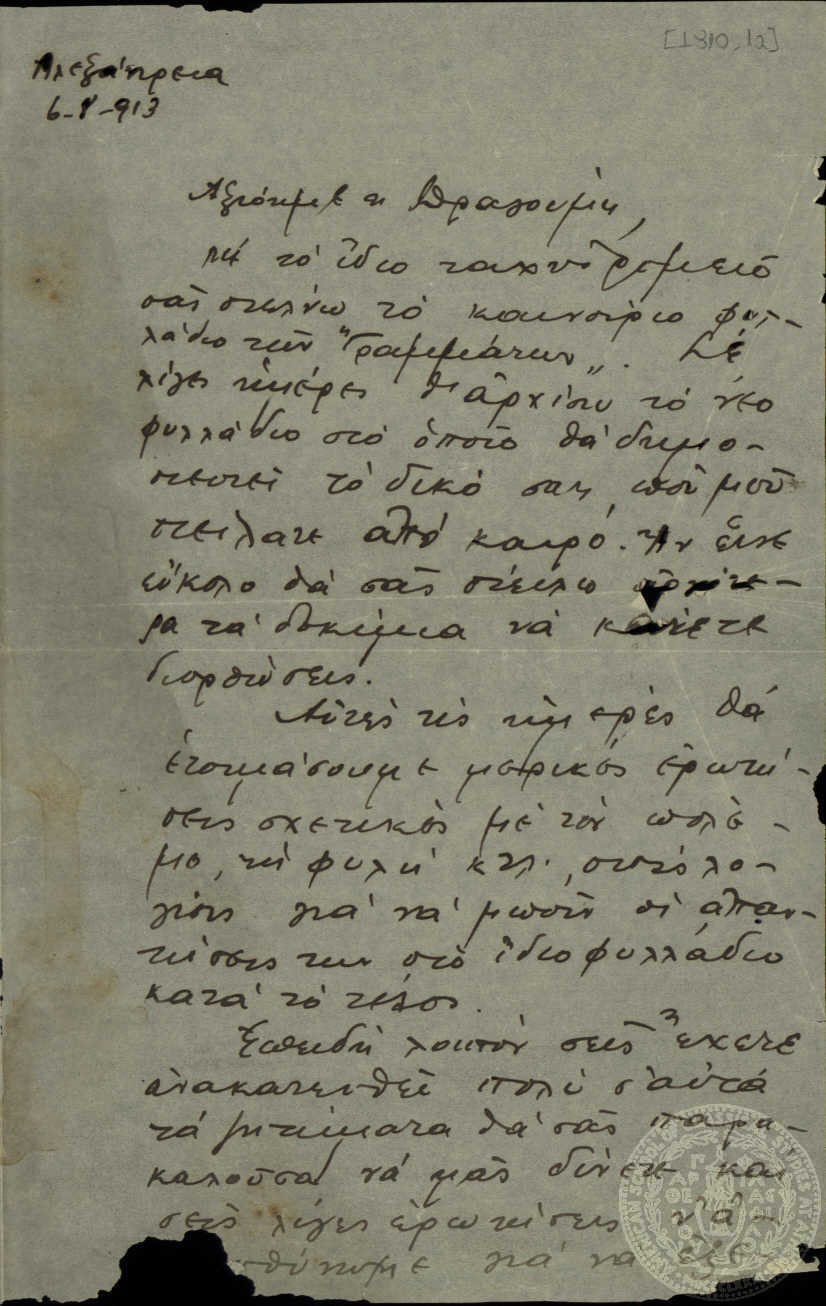 [1810, 12]
Ἀλεξάντρεια
6-8-913
Ἀξιότιμε κ Δραγούμη,
Μέ τό ἴδιο ταχυδρομεῖο
σᾶς στέλνω τό καινούριο φυλ-
λάδιο τῶν "Γραμμάτων". Σέ
λίγες ἡμέρες θ' ἀρχίσω τό νέο
φυλλάδιο στό ὁποῖο θά δημο-
σιευτεῖ τό δικό σας, ποῦ μοῦ
στείλατε ἀπό καιρό. Ἄν εἶνε
εὔκολο θά σᾶς στείλω
ρα τά δοκίμια νά κάνετε
διορθώσεις.
Αὐτές τίς ἡμερές θά
ἑτοιμάσουμε μερικές ἐρωτή-
σεις σχετικές μέ τόν πόλε-
μο, τή φυλή κτλ.,
γιά νά μποῦν οἱ ἀπαν-
τήσεις των στό ἴδιο φυλλάδιο
κατά τό τέλος.
Ἐπειδή λοιπόν σεῖς ἔχετε
ἀνακατευθεῖ πολύ σ' αὐτά
τά ζητήματα θά σᾶς παρα-
καλοῦσα νά μᾶς δίνετε καί
σεῖς λίγες ἐρωτήσεις ν' ἀ-
γιά νά